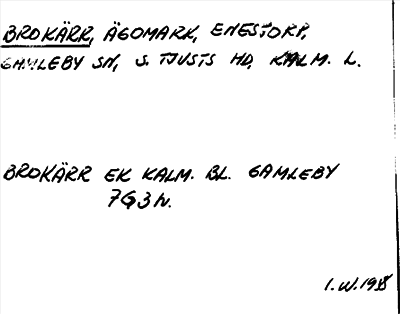 BROKÄRR, ÄGOMARK, ENESTORP,
GAMLEBY SN, S. TJUSTS HD, KALM. L.
BROKÄRR EK KALM. BL. GAMLEBY
7G3h.
I.W.